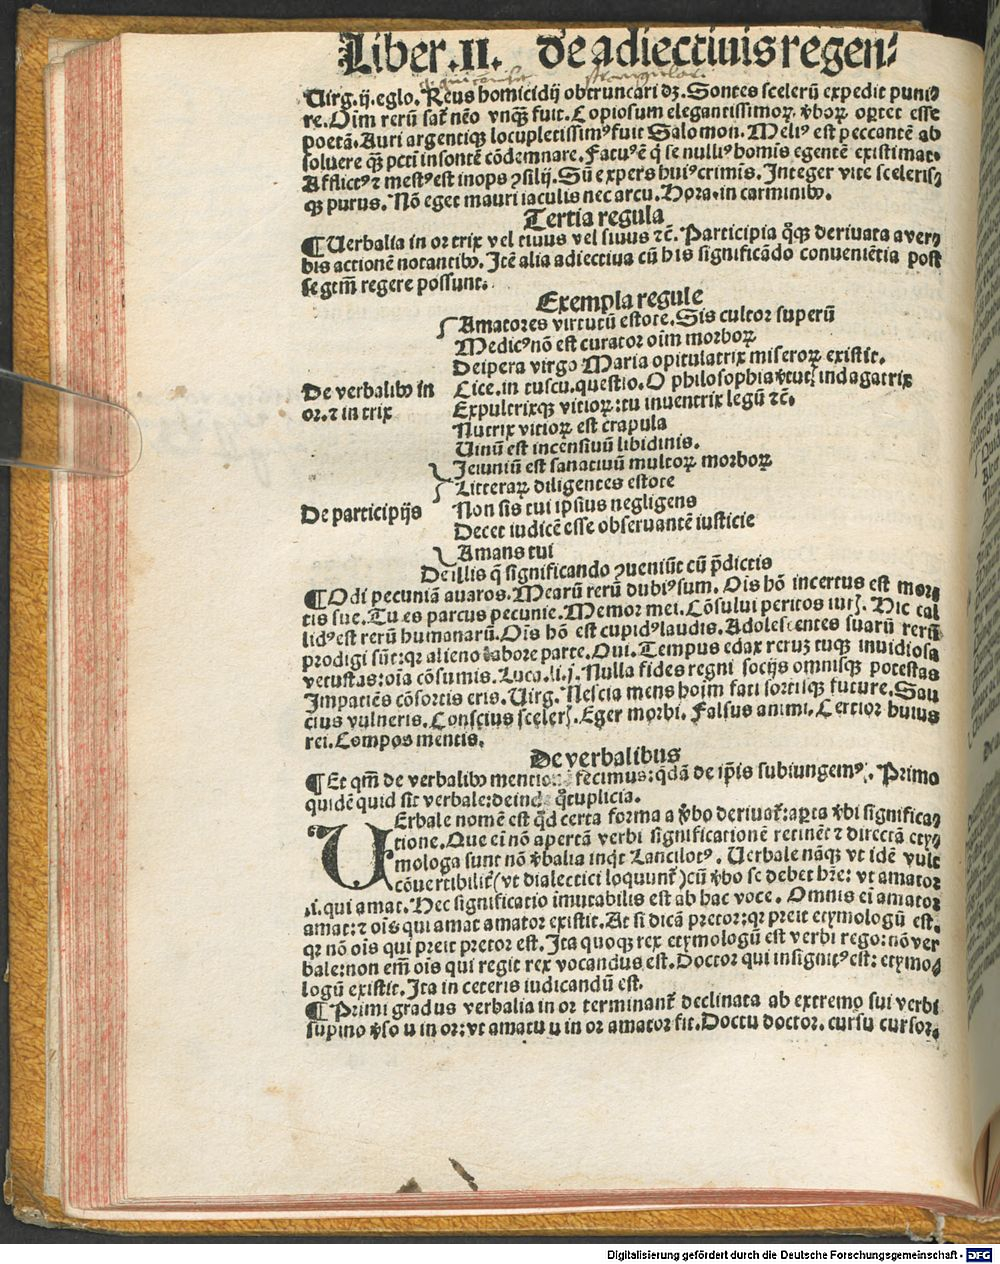 Liber.II. de adiectiuis regen⸗
Uirg.ij.eglo. Reus homicidij obtruncari dꝫ. Sontes scelerū expedit puni⸗
re. Oim rerū sat᷑ nēo vnqȝ fuit. Copiosum elegantissimoꝝ ꝟboꝝ oꝑtet esse
poetā. Auri argentiqȝ locupletissimꝰ fuit Salomon. Meliꝰ est peccantē ab
soluere qȝ pcti insontē cōdemnare. Factuꝰ ē q̇ se nulliꝰ homīs egentē existimat.
Afflictꝰ ⁊ mestꝰ est inops ꝯsilij. Sū expers huiꝰ crimis. Integer vite sceleris⸗
qȝ purus. Nō eget mauri iaculis nec arcu. Hora. in carminibꝰ.
Tertia regula
¶ Uerbalia in or trix vel tiuus vel siuus ⁊c̄. Participia q̊qȝ deriuata a ver⸗
bis actionē notantibꝰ. Itē alia adiectiua cū his significādo conueniētia post
se gtm̄ regere possunt.
Exempla regule
Amatores virtutū estote. Sis cultor superū
Medicꝰ nō est curator oim morboꝝ
Deipera virgo Maria opitulatrix miseroꝝ existit.
De verbalibꝰ in
Cice. in tuscu. questio. O philosophia ꝟtutꝭ indagatrix
or. ⁊ in trix
Expultrixqȝ vitioꝝ: tu inuentrix legū ⁊c̄.
Nutrix vitioꝝ est crapula
Uinū est incensiuū libidinis.
Ieiuniū est sanatiuū multoꝝ morboꝝ
Litteraꝝ diligentes estote
De participijs
Non sis tui ipsius negligens
Decet iudicē esse obseruantē iusticie
Amans tui
De illis q̄ significando ꝯueniūt cū p̄dictis
¶ Odi pecuniā auaros. Mearū rerū dubiꝰ sum. Ois hō incertus est mor⸗
tis sue. Tu es parcus pecunie. Memor mei. Cōsului peritos iurꝭ. Hic cal
lidꝰ est rerū humanarū. Oīs hō est cupidꝰ laudis. Adolescentes suarū rerū
prodigi sūt: qr alieno labore parte. Oui. Tempus edax reruȝ tuqȝ inuidiosa
vetustas: oīa cōsumis. Luca. li. j. Nulla fides regni socijs omnisqȝ potestas
Impatiēs cōsortis erit. Uirg. Nescia mens hoīm fati sortisqȝ future. Sau
cius vulneris. Conscius scelerꝭ. Eger morbi. Falsus animi. Certior huius
rei. Compos mentis.
De verbalibus
¶ Et qm̄ de verbalibꝰ mentionē fecimus: q̄dā de ip̄is subiungemꝰ. Primo
quidē quid sit verbale: deinde q̊tuplicia.
UErbale nomē est qd̄ certa forma a ꝟbo deriuat᷑: aꝑta ꝟbi significa⸗
tione. Que ei nō apertā verbi significationē retinēt ⁊ directā ety⸗
mologa sunt nō ꝟbalia inqt Lancilotꝰ. Uerbale nāqȝ vt idē vult
cōuertibilit᷑ (vt dialectici loquunt᷑) cū ꝟbo se debet hr̄e: vt amator
.i. qui amat. Hec significatio imutabilis est ab hac voce. Omnis ei amator
amat: ⁊ oīs qui amat amator existit. At si dicā pretor: qr preit etymologū est.
qr nō oīs qui preit pretor est. Ita quoqȝ rex etymologū est verbi rego: nō ver
bale: non em̄ oīs qui regit rex vocandus est. Doctor qui insignitꝰ est: etymo⸗
logū existit. Ita in ceteris iudicandū est.
¶ Primi gradus verbalia in or terminant᷑ declinata ab extremo sui verbi
supino ꝟso u in or: vt amatu u in or amator fit. Doctu doctor. cursu cursor.
Digitalisierung gefördert durch die Deutsche Forschungsgemeinschaft - DFG